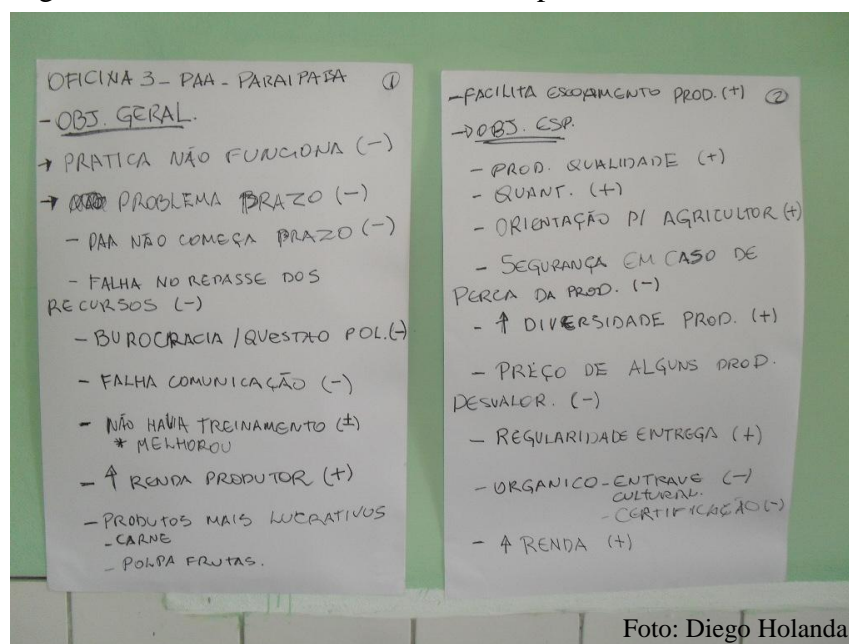 OFICINA 3 - PAA - PARAIPABA ①
- OBJ. GERAL.
→ PRATICA NÃO FUNCIONA (-)
→ PROBLEMA PRAZO (-)
- PAA NÃO COMEÇA PRAZO (-)
- FALHA NO REPASSE DOS
RECURSOS (-)
- BUROCRACIA / QUESTÃO POL. (-)
- FALHA COMUNICAÇÃO (-)
- NÃO HAVIA TREINAMENTO (±)
* MELHOROU
- ↑ RENDA PRODUTOR (+)
- PRODUTOS MAIS LUCRATIVOS
- CARNE
- POLPA FRUTAS.
- FACILITA ESCOAMENTO PROD. (+) ②
→ OBJ. ESP.
- PROD. QUALIDADE (+)
- QUANT. (+)
- ORIENTAÇÃO P/ AGRICULTOR (+)
- SEGURANÇA EM CASO DE
PERCA DA PROD. (-)
- ↑ DIVERSIDADE PROD. (+)
- PREÇO DE ALGUNS PROD.
DESVALOR. (-)
- REGULARIDADE ENTREGA (+)
- ORGANICO - ENTRAVE (-)
CULTURAL.
- CERTIFICAÇÃO (-)
- ↑ RENDA (+)
Foto: Diego Holanda